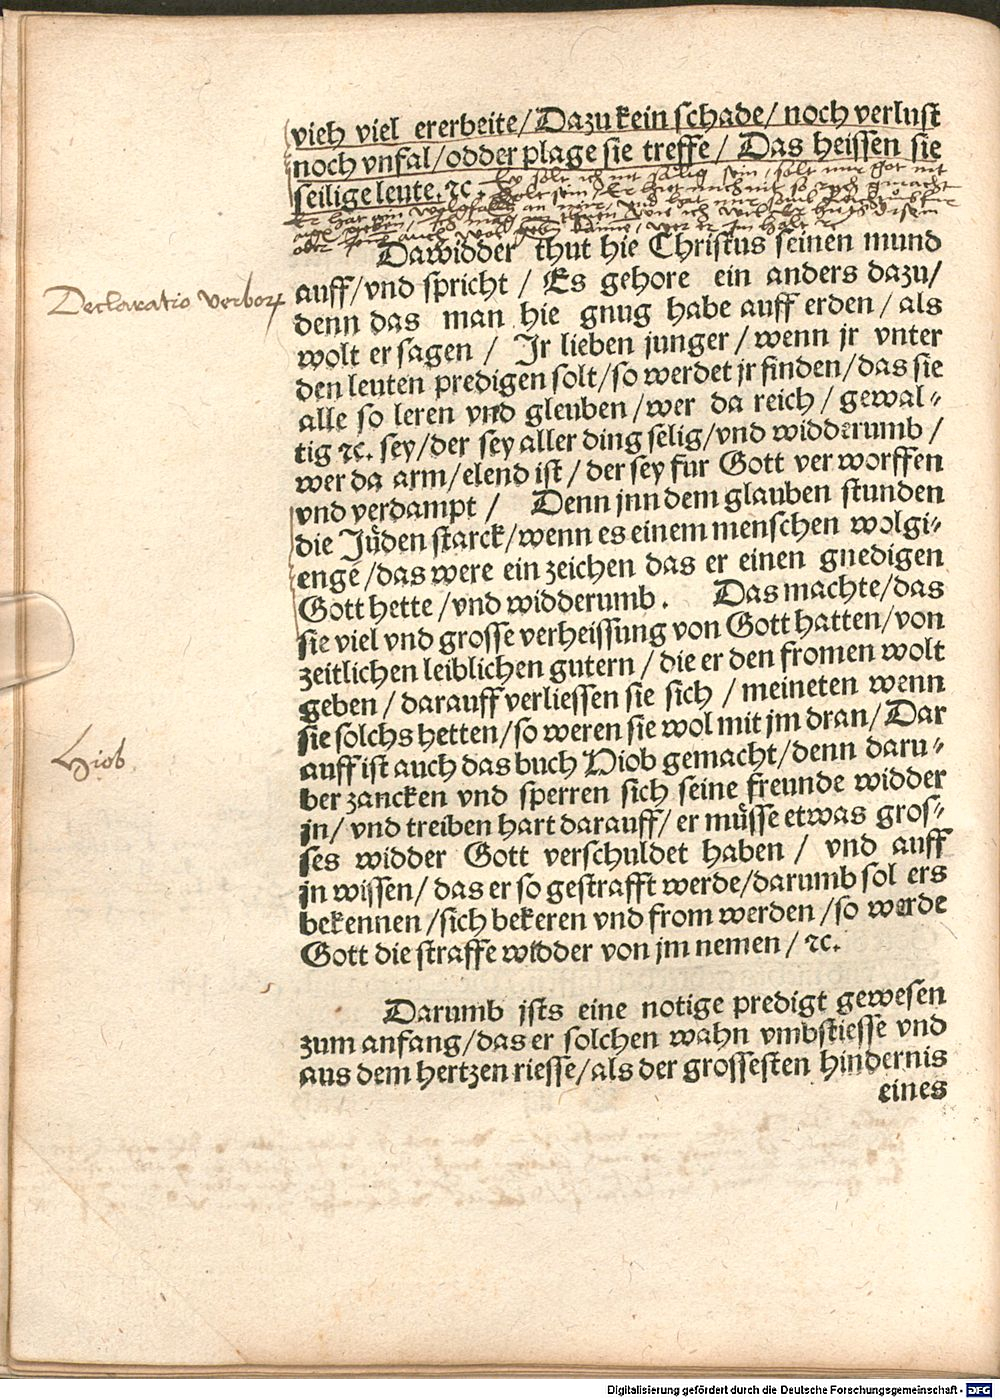 vieh viel ererbeite/Dazu kein schade/ noch verlust
noch vnfal/odder plage sie treffe/ Das heissen sie
seilige leute. ꝛc.
Ey solt ich nit sälig sein, solt mir got nit
Dawidder thut hie Christus seinen mund
Declaratio verborꝝ
auff/vnd spricht / Es gehore ein anders dazu/
denn das man hie gnug habe auff erden/ als
wolt er sagen / Jr lieben junger/wenn jr vnter
den leuten predigen solt/so werdet jr finden/das sie
alle so leren vnd gleuben/wer da reich/ gewal⸗
tig ꝛc. sey/der sey aller ding selig/vnd widderumb/
wer da arm/elend ist/ der sey fur Gott verworffen
vnd verdampt / Denn jnn dem glauben stunden
die Jüden starck/wenn es einem menschen wolgi⸗
enge/das were ein zeichen das er einen gnedigen
Gott hette/vnd widderumb. Das machte/das
sie viel vnd grosse verheissung von Gott hatten/von
zeitlichen leiblichen gutern/ die er den fromen wolt
geben/ darauff verliessen sie sich / meineten wenn
sie solchs hetten/so weren sie wol mit jm dran/ Dar
Hiob
auff ist auch das buch Hiob gemacht/denn daru⸗
ber zancken vnd sperren sich seine freunde widder
jn/ vnd treiben hart darauff/ er müsse etwas gros⸗
ses widder Gott verschuldet haben / vnd auff
jn wissen/ das er so gestrafft werde/darumb sol ers
bekennen/sich bekeren vnd from werden/so werde
Gott die straffe widder von jm nemen/ ꝛc.
Darumb ists eine notige predigt gewesen
zum anfang/das er solchen wahn vmbstiesse vnd
aus dem hertzen riesse/als der grossesten hindernis
eines
Digitalisierung gefördert durch die Deutsche Forschungsgemeinschaft - DFG